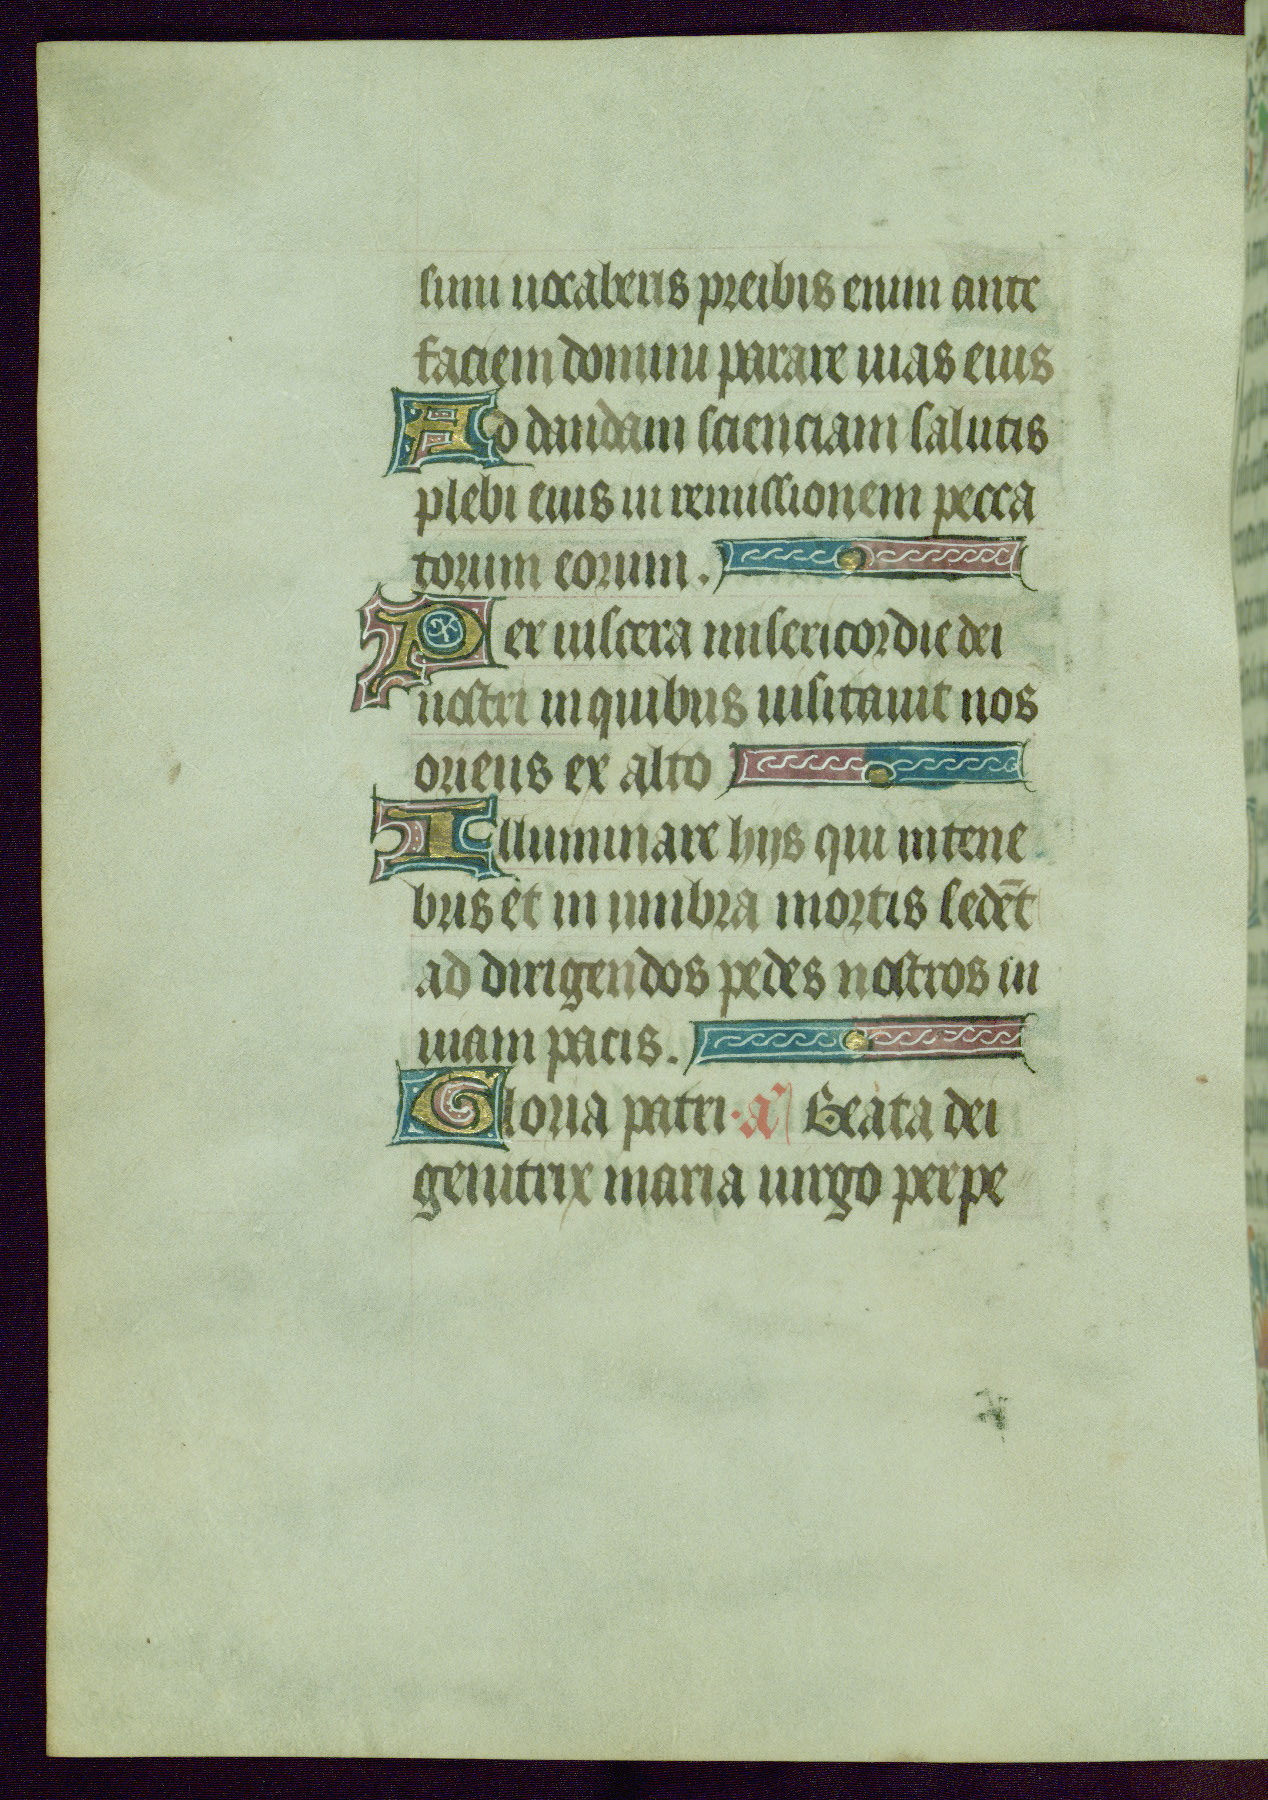 simi uocaberis preibis enim ante
faciem domini parare uias eius
Ad dandam scienciam salutis
plebi eius in remissionem pecca
torum eorum.
Per uiscera misericordie dei
nostri in quibus uisitauit nos
oriens ex alto
Illuminare hijs qui in tene
bris et in umbra mortis sedēt
ad dirigendos pedes nostros in
uiam pacis.
Gloria patri. a Beata dei
genitrix maria uirgo perpe